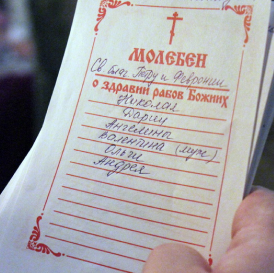 МОЛЕБЕН
Св. блгв. Петру и Февронии
о здравии рабов Божиих
Николая
Дарии
Ангелины
Валентина (муж)
Ольги
Андрея